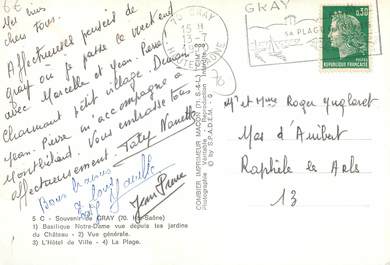 Mes mis
chers Tous.
Affectueuses pensées de
gray où je passe ce week end
avec Marcelle et Jean-Pierre
charmant petit village. Demain
Jean-Pierre m'accompagne à
Montbéliard. Vous embrasse tous
affectueusement. Taty Nanette
Bons baisers
Jean Pierre
5 C - Souvenir de GRAY (70. Hte-Saône)
1) Basilique Notre-Dame vue depuis les jardins
du Château - 2) Vue générale.
3) L'Hôtel de Ville - 4) La Plage.
COMBIER IMPRIMEUR MACON (71.S.-&-L.) "CIM"
Photographie Véritable - Reproduction Interdite
by S.P.A.D.E.M.
GRAY
GRAY
SA PLAGE
0,30
REPUBLIQUE FRANÇAISE
POSTES
Mr et Mme Roger
Mas d'
Raphèle les Arles
13